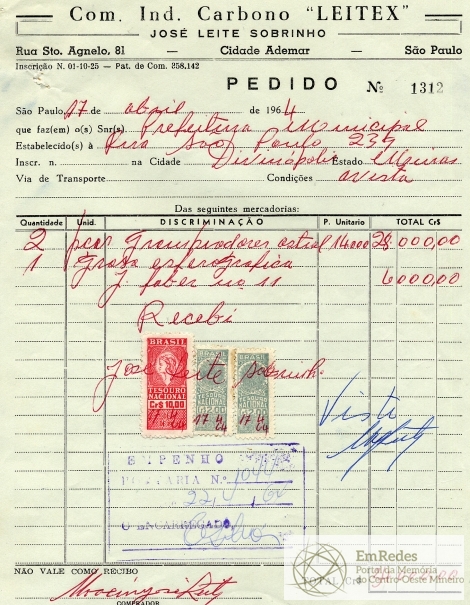 Com. Ind. Carbono "LEITEX"
JOSÉ LEITE SOBRINHO
Rua Sto. Agnelo, 81 — Cidade Ademar — São Paulo
Inscrição N. 01-10-25 - Pat. de Com. 358.142
PEDIDO Nº 1312
São Paulo, 17 de abril de 1964
que faz(em) o(s) Snr(s). Prefeitura Municipal
Estabelecido(s) à Rua São Paulo 239
Inscr. n. na Cidade Divinópolis Estado Minas
Via de Transporte Condições a vista
Das seguintes mercadorias:
Quantidade Unid. DISCRIMINAÇÃO P. Unitario TOTAL Cr$
2 14000 28.000,00
1 Grosa esferografica
J. faber no. 11 6000,00
Recebi
José Leite Sobrinho
BRASIL
TESOURO NACIONAL
Cr$ 10,00
17 4 64
BRASIL
TESOURO NACIONAL
17 4 64
Visto
EMPENHO
PORTARIA N.º
O ENCARREGADO,
NÃO VALE COMO RECIBO
COMPRADOR
TOTAL Cr$
EmRedes
Portal da Memória
do Centro-Oeste Mineiro